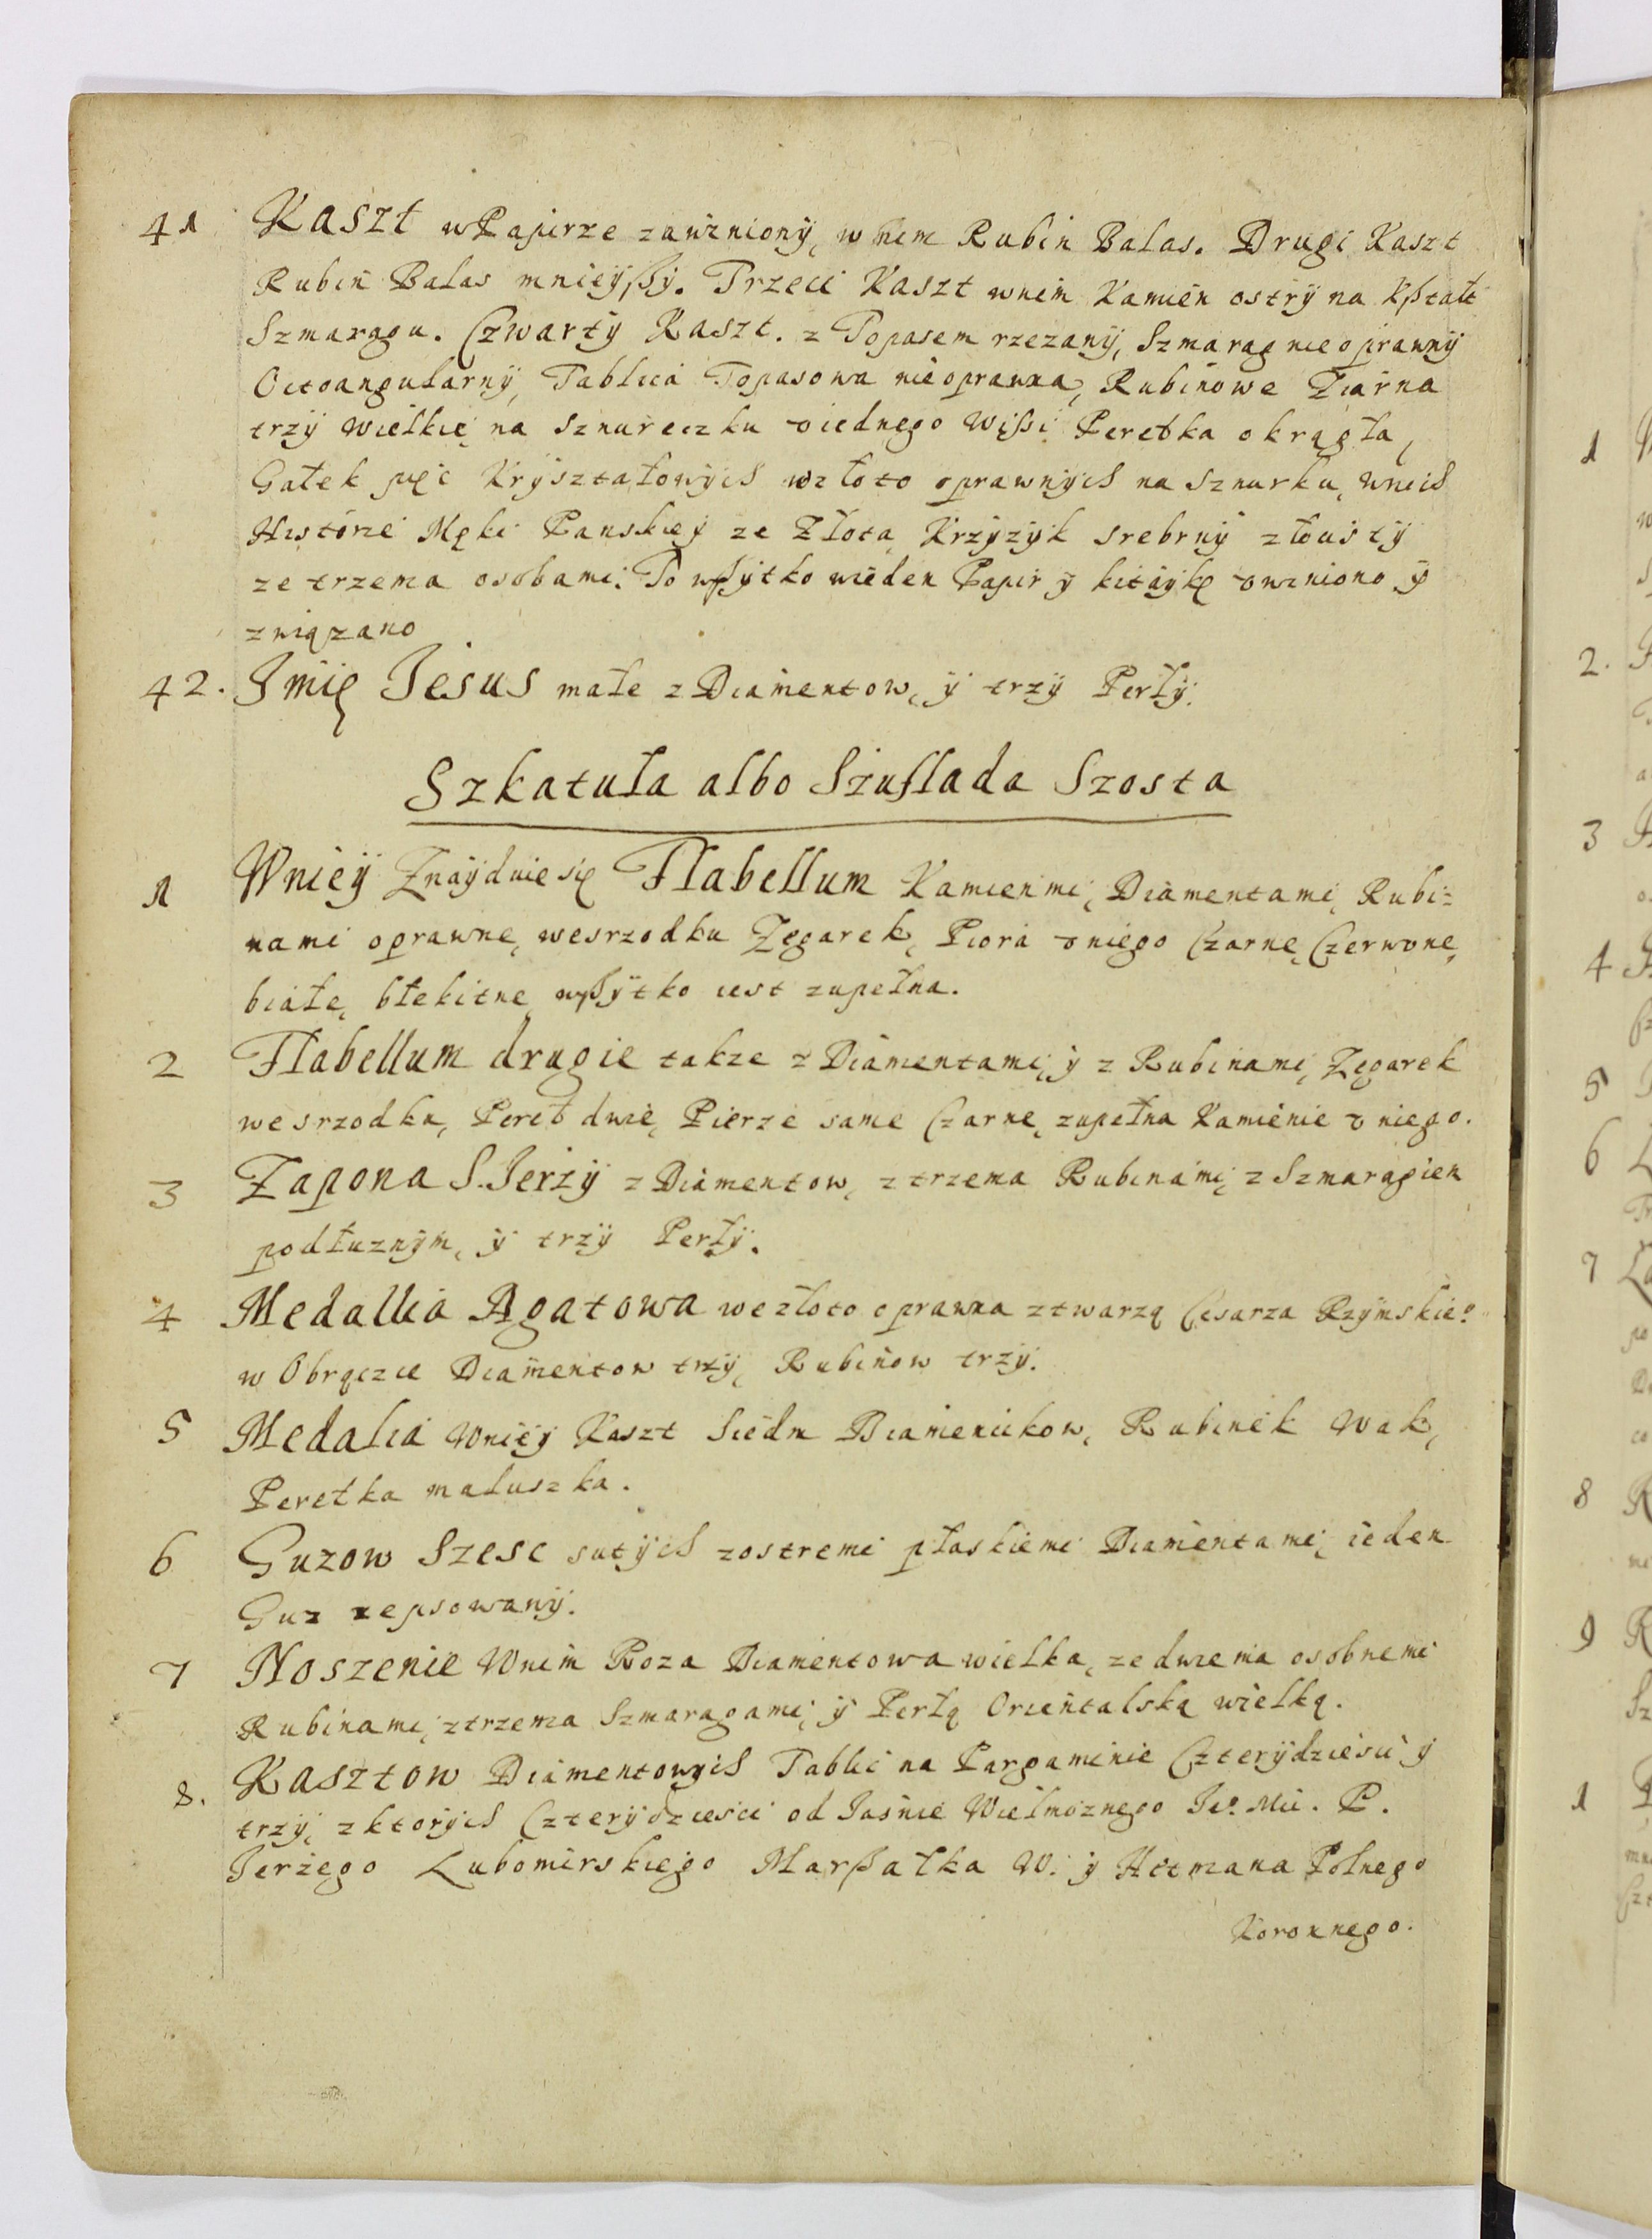 41 Kaszt w Papirze zawinionÿ, w nim Rubin Balas. Drugi Kaszt
Rubin Balas mnieÿßÿ. Trzeci Kaszt wnim Kamien ostrÿ na kßtałt
Szmaragu. Czwartÿ Kaszt. z Topasem rzezanÿ, Szmarag nie oprawnÿ
Octoangularnÿ, Tablica Topasowa nie oprawna, Rubinowe Ziarna
trzÿ wielkie, na sznureczku v iednego wißi Perełka okrągła,
Gałek pięc Krÿształowÿch wzłoto oprawnÿch na sznurku, wnich
Historie Męki Panskieÿ ze Złota, Krzÿzÿk srebrnÿ złocistÿ
ze trzema osobami. To wßÿtko wieden Papir ÿ kitaÿkę owiniono ÿ
związano
42. Jmię Jesus małe z Diamentow, ÿ trzÿ Perłÿ.
Szkatuła albo Szuflada Szosta
1 Wnieÿ Znaÿduie się Flabellum Kamienmi, Diamentami, Rubi=
nami oprawne, wesrzodku Zegarek, Piora v niego Czarne, Czerwone,
białe, błekitne, wßÿtko iest zupełna.
2 Flabellum drugie takze z Diamentami, ÿ z Rubinami, Zegarek
wesrzodku, Pereł dwie, Pierze same Czarne, zupełna Kamienie v niego.
3 Zapona S. Jerzÿ z Diamentow, z trzema Rubinami, z Szmaragiem
podłuznÿm, ÿ trzÿ Perłÿ.
4 Medallia Agatowa wezłoto oprawna ztwarzą Cesarza Rzÿmskieº
w Obrączce Diamentow trzÿ, Rubinow trzÿ.
5 Medalia Wnieÿ Kaszt Siedm Diamencikow, Rubinek Wak,
Perełka maluszka.
6 Guzow Szesc sutÿch zostremi płaskiemi Diamentami, ieden
Guz zepsowanÿ.
7 Noszenie Wnim Roza Diamentowa wielka, ze dwiema osobnemi
Rubinami, ztrzema Szmaragami, ÿ Perłą Orientalską wielką.
8. Kasztow Diamentowÿch Tablic na Pargaminie Czterÿdziesci ÿ
trzÿ, z ktorÿch Czterÿdziesci od Jaśnie Wielmoznego Jeº Mci. P.
Jerzego Lubomirskiego Marßałka W. ÿ Hetmana Polnego
Koronnego.
1
2.
3
4
5
6
7
8
9
1